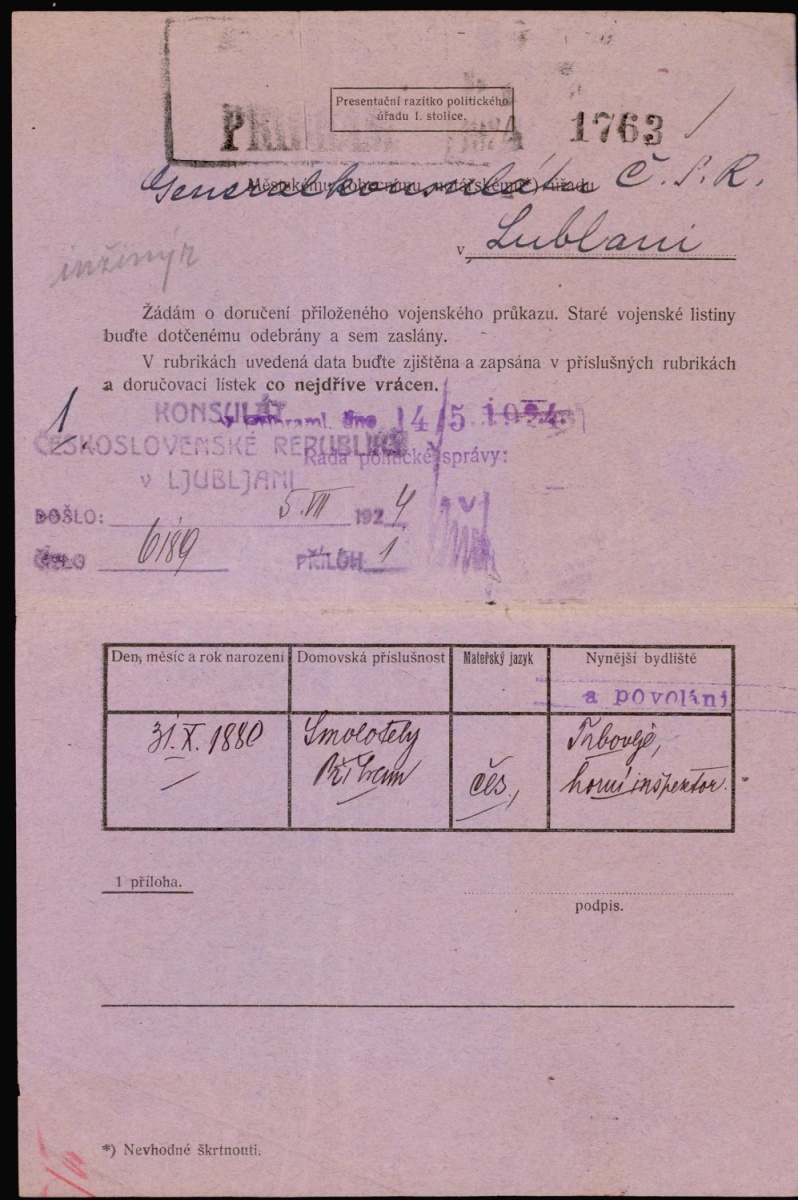 Presentační razítko politického
úřadu I. stolice.
1763
Generalkonsulátu Č. S. R.
Městskému úřadu
v Lublani
inžinýr
Žádám o doručení přiloženého vojenského průkazu. Staré vojenské listiny
buďte dotčenému odebrány a sem zaslány.
V rubrikách uvedená data buďte zjištěna a zapsána v příslušných rubrikách
a doručovací lístek co nejdříve vrácen.
1.
KONSULÁT
ČESKOSLOVENSKÉ REPUBLIKY
v LJUBLJANI
dne 14/5 1924
Rada politické správy:
DOŠLO: 5. VII 1924
ČÍSLO 6189 PŘÍLOH 1
Den, měsíc a rok narození Domovská příslušnost Mateřský jazyk Nynější bydliště
a povolání
31. X. 1880 Smolotely Trbovlje,
Příbram čes., horní inspektor.
1 příloha.
podpis.
*) Nevhodné škrtnouti.